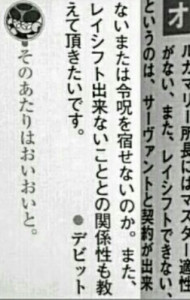 オルガマリー所長にはマスター適性
がない、また、レイシフトできない、
というのは、サーヴァントと契約が出来
ないまたは令呪を宿せないのか。また、
レイシフト出来ないこととの関係性も教
えて頂きたいです。 ●デビット
●そのあたりはおいおいと。